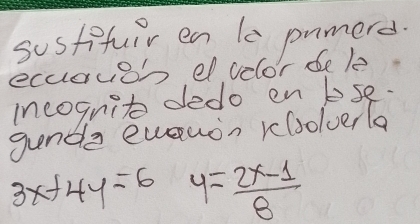 sustituir en la primera.
ecuación el valor de la
incognita dado en la se-
gunda ecuación resolverla
3x+4y=6 y=\frac{2x-1}{8}